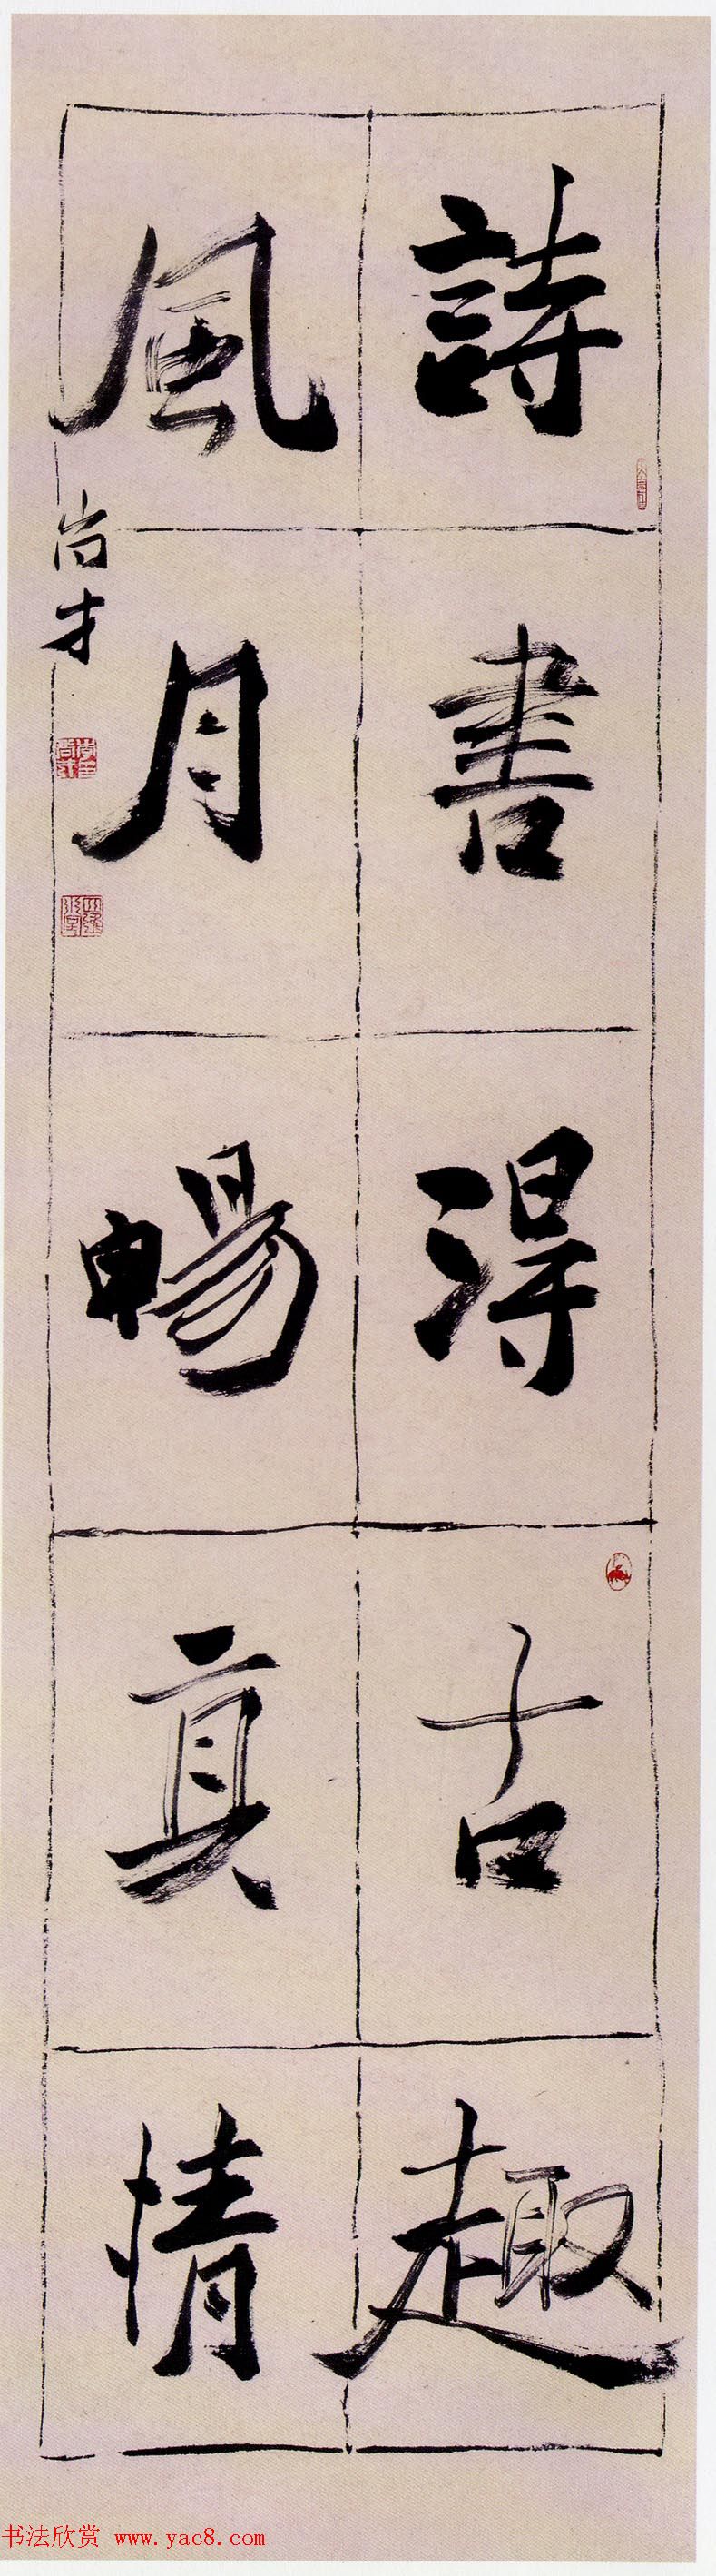 詩書得古趣
風月暢真情
尚才
书法欣赏 www.yac8.com